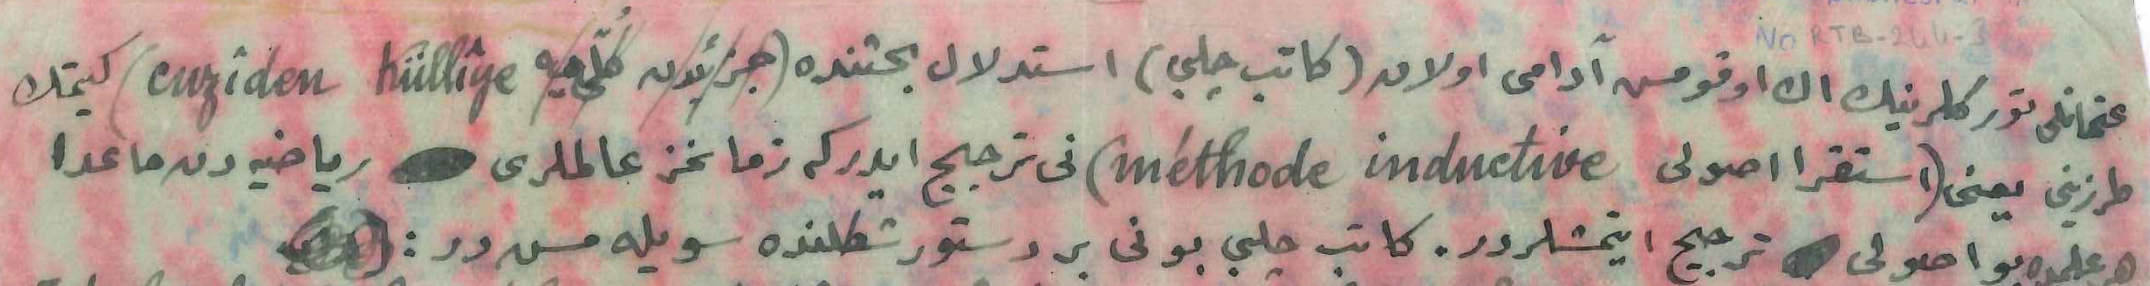 No RTB-244-3
عثمانلی تورکلرینك اك اوقومش آدامی اولان (کاتب چلبی) استدلال بحثنده (جزئیدن کُلّی‌یه cuzîden küllîye) کیتمك
طرزینی یعنی (استقرا اصولی méthode inductive) نی ترجیح ایدر که زمانمز عالملری ریاضیه دن ماعدا
هر علمده بو اصولی ترجیح ایتمشلردر. کاتب چلبی بونی بر دستور شکلنده سویله مش در :